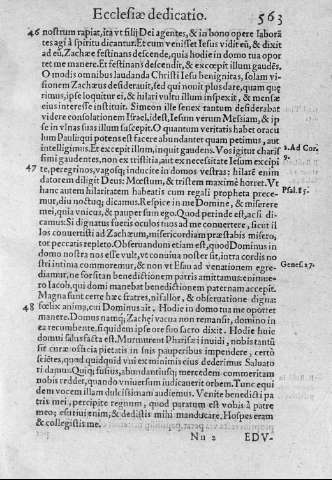 Ecclesiæ dedicatio. 563
46 nostrum rapiat, ita vt filij Dei agentes, & in bono opere laborã
tes agi à spiritu dicantur. Et cum venisset Iesus vidit eũ, & dixit
ad eũ, Zachæe festinans descende, quia hodie in domo tua opor
ret me manere. Et festinans descendit, & excœpit illum gaudẽs.
O modis omnibus laudanda Christi Iesu benignitas, solam vi-
sionem Zachæus desiderauit, sed qui nouit plus dare, quam quę
rimus, ipse loquitur ei, & hilari vultu illum inspexit, & mensæ
eius interesse instituit. Simeon ille senex tantum desiderabat
videre consolationem Israel, idest, Iesum verum Messiam, & ip
se in vlnas suas illum suscepit. O quantum veritatis habet oracu
lum Pauli: qui potens est facere abundanter quam petimus, aut
intelligimus. Et excepit illum, inquit gaudens. Vos igitur charis- 2. Ad Cor.
simi gaudentes, non ex tristitia, aut ex necessitate Iesum excipi 9.
47 te, peregrinos, vagosq; inducite in domos vestras: hilarẽ enim
datorem diligit Deus: Mœstum, & tristem maxime horret. Vt
hanc autem hilaritatem habeatis cum regali propheta prece-
mur, diu noctuq; dicamus. Respice in me Domine, & miserere Psal. 85.
mei, quia vnicus, & pauper sum ego. Quod perinde est, ac si di-
camus. Si dignatus fueris oculos tuos ad me conuertere, sicut il
los conuertisti ad Zachæum, misericordiam præstabis misero,
tot peccatis repleto. Obseruandum etiam est, quod Dominus in
domo nostra nos esse vult, vt conuiua noster sit, intra cordis no
stri intima commoremur, & non vt Esau ad venationem egre- Genes. 27.
diamur, ne forsitan benedictionem patris amittamus: enimue-
ro Iacob, qui domi manebat benedictionem paternam accepit.
Magna sunt certe hæc fratres, nisi allor, & obseruatione digna:
48 fœlix anima, cui Dominus ait. Hodie in domo tua me oportet
manere. Domus namq; Zachæi vacua non remansit, domino in
ea recumbente, siquidem ipse ore suo sacro dixit. Hodie huic
domui salus facta est. Murmurent Pharisæi inuidi, nobis tantũ
sit curæ ostia pietatis in sinu pauperis impendere, certò
sciẽtes, quod quidquid vni ex minimis eius dederimus Saluato
ri damus: Quiq; fusius, abundantiusq; mercedem commeritam
nobis reddet, quando vniuersum iudicauerit orbem. Tunc equi
dem vocem illam dulcissimam audiemus. Venite benedicti pa
tris mei, percipite regnum, quod paratum est vobis à patre
meo; esuriui enim, & dedistis mihi manducare. Hospes eram
& collegistis me.
Nn 2 EDV-